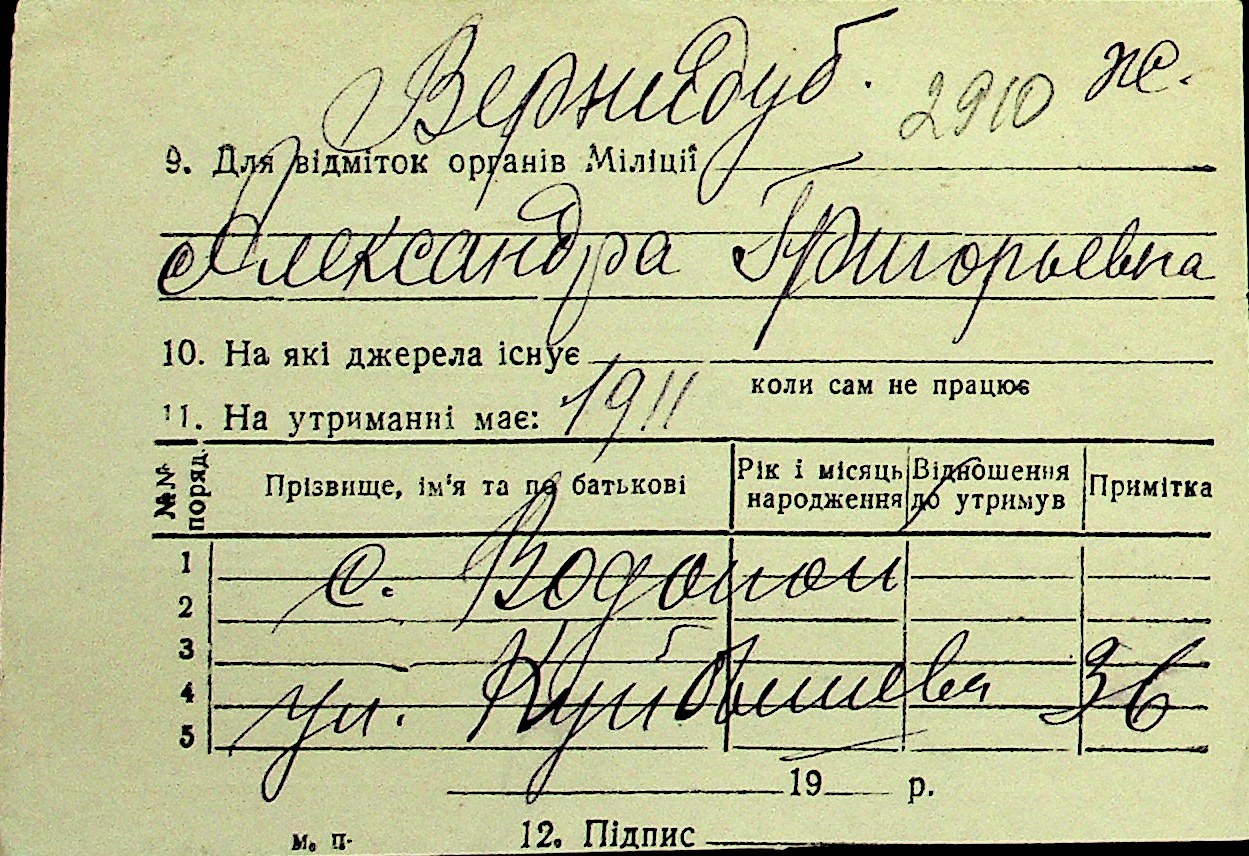 Вернидуб. 2910 ж.
9. Для відміток органів Міліції
Александра Григорьевна
10. На які джерела існує
коли сам не працює
11. На утриманні має: 1911
№№ поряд.
Прізвище, ім'я та по батькові
Рік і місяць народження
Відношення до утримув
Примітка
1
с. Водопои
2
3
4
ул. Куйбышева 36
5
19 р.
м. п. 12. Підпис